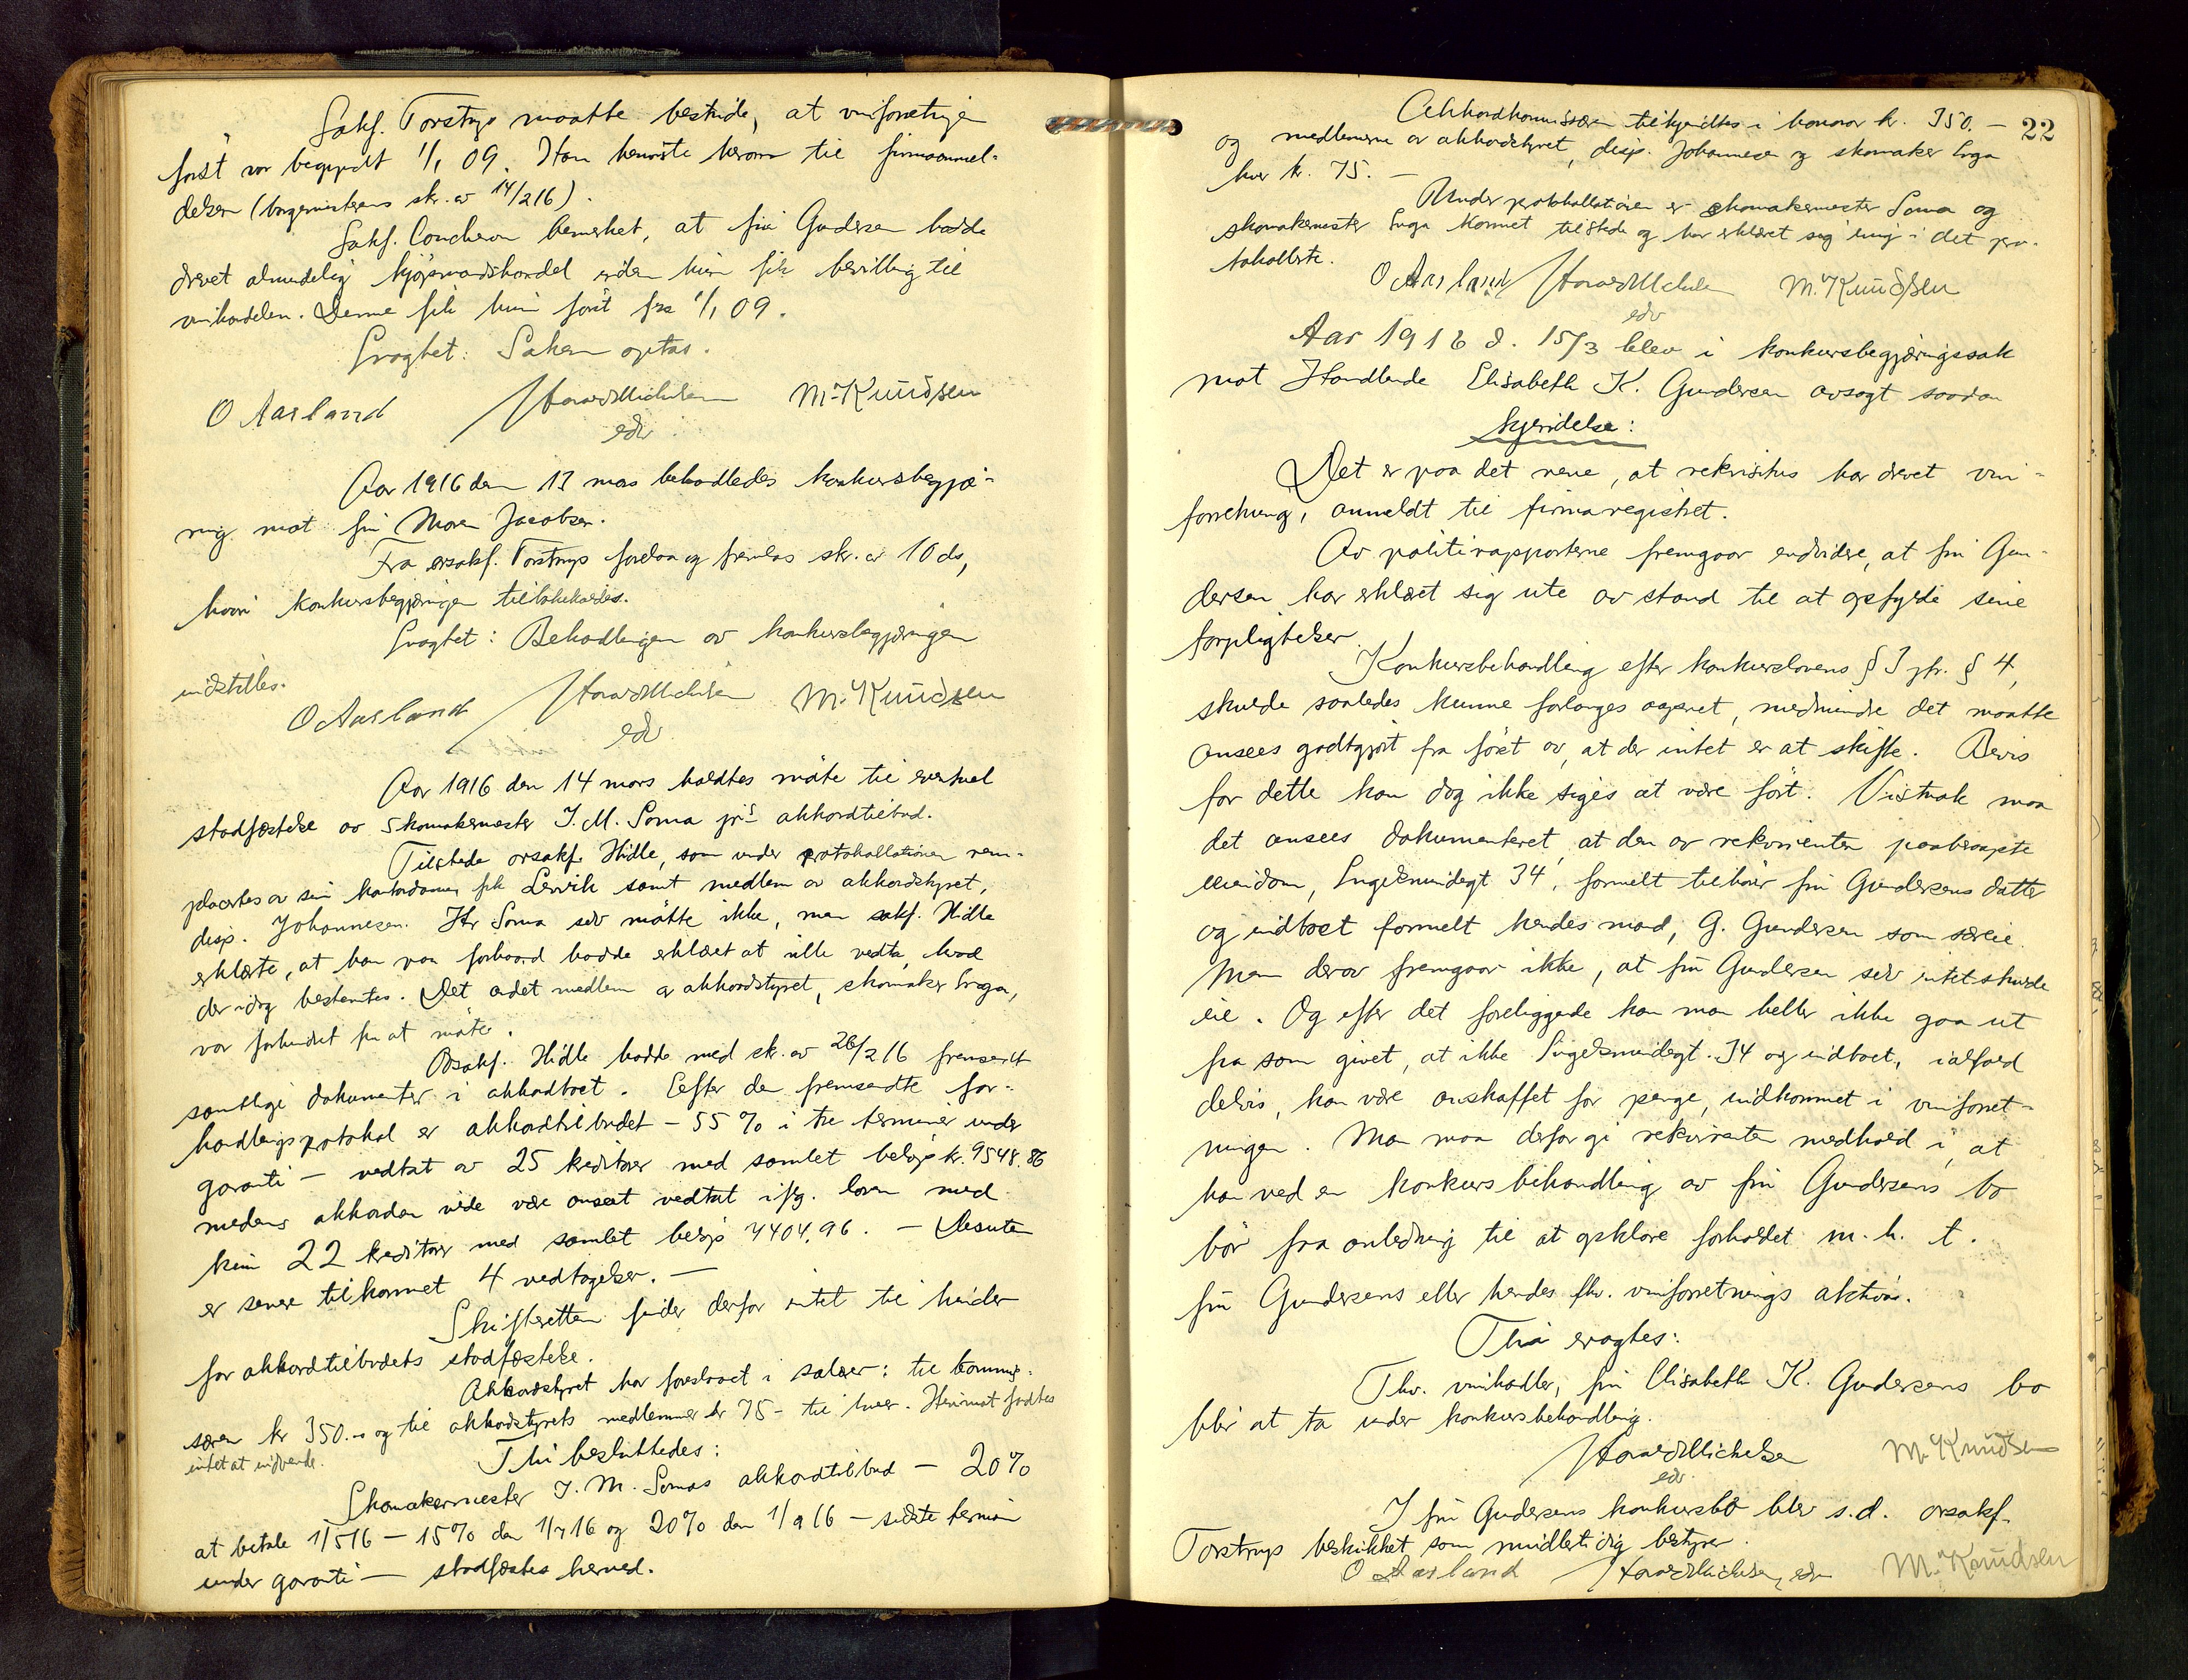 Sakf. Torstrup maatte bestride, at vinforretningen
først var begyndt 1/1 09. Han henviste herom til firmaanmel-
delsen (borgermesterens skr. av 14/2 16).
Sakf. Concheron bemerket, at fru Gundersen hadde
drevet almindelig kjøpmandshandel inden hun fik bevilling til
vinhandelen. Denne fik hun først fra 1/1 09.
Eragtet: Saken optas.
O Aarland Harald Michelsen M. Knudsen
edv.
Aar 1916 den 13 mars behandledes konkursbegjæ-
ring mot fru Maren Jacobsen.
Fra orsakf. Torstrup forelaa og fremlas skr. av 10 ds,
hvori konkursbegjæringen tilbakekaldes.
Eragtet: Behandlingen av konkursbegjæringen
indstilles.
O Aarland Harald Michelsen M. Knudsen
edv.
Aar 1916 den 14 mars holdtes møte til eventuel
stadfæstelse av Skomakermester J. M. Soma jr's akkordtilbud.
Tilstede orsakf. Hidle, som under protokollationen rem-
placertes av sin kontordame frk Lervik samt medlem av akkordstyret,
disp. Johannesen. Hr Soma selv møtte ikke, men sakf. Hidle
erklærte, at han paa forhaand hadde erklæret at ville vedta, hvad
der idag bestemtes. Det andet medlem av akkordstyret, skomaker Svaga,
var forhindret fra at møte.
Orsakf. Hidle hadde med skr. av 26/2 16 fremsendt
samtlige dokumenter i akkordboet. Efter den fremsendte for-
handlingsprotokol er akkordtilbudet – 55 % i tre terminer under
garanti – vedtat av 25 kreditorer med samlet beløp kr. 9548.86
medens akkorden vilde være anseet vedtat iflg. loven med
kun 22 kreditorer med samlet beløp 7404,96. – Desuten
er senere tilkommet 4 vedtagelser. –
Skifteretten finder derfor intet til hinder
for akkordtilbudets stadfæstelse.
Akkordstyret har foreslaaet i salær: til kommis-
særen kr 350.- og til akkordstyrets medlemmer kr 75- til hver. Herimot fandtes
intet at indvende.
Thi besluttedes:
Skomakermester J. M. Somas akkordtilbud – 20%
at betale 1/5 16 – 15% den 1/7 16 og 20% den 1/9 16 – sidste termin
under garanti – stadfæstes herved.
22
Akkordkommissæren tilkjendtes i honorar kr. 350. –
og medlemmene av akkordstyret, disp. Johannesen og skomaker Svaga
hver kr. 75. –
Under protokollationen er skomakermester Soma og
skomakermester Svaga kommet tilstede og har erklæret sig enig i det pro-
tokollerte.
O Aarland Harald Michelsen M. Knudsen
edv
Aar 1916 d. 15/3 blev i konkursbegjæringssak
mot Handlende Elisabeth K. Gundersen avsagt saadan
kjendelse:
Det er paa det rene, at rekvisitus har drevet vin-
forretning, anmeldt til firmaregistret.
Av politirapporterne fremgaar endvidere, at fru Gun-
dersen har erklæret sig ute av stand til at opfylde sine
forpligtelser.
Konkursbehandling efter konkurslovens § 3 jfr. § 4,
skulde saaledes kunne forlanges aapnet, medmindre det maatte
ansees godtgjort fra først av, at der intet er at skifte. Bevis
for dette kan dog ikke siges at være ført. Vistnok maa
det ansees dokumenteret, at den av rekvirenten paaberaapte
eiendom, Engelsmindegt 34, formelt tilhører fru Gundersens datter
og indboet formelt hendes mand, G. Gundersen som særeie.
Men derav fremgaar ikke, at fru Gundersen selv intet skulde
eie. Og efter det foreliggende kan man heller ikke gaa ut
fra som givet, at ikke Engelsmindegt. 34 og indboet, ialfald
delvis, kan være anskaffet for penge, indkommet i vinforret-
ningen. Man maa derfor gi rekvirenten medhold i, at
han ved en konkursbehandling av fru Gundersens bo
bør faa anledning til at opklare forholdet m. h. t.
fru Gundersens eller hendes fhv. vinforretnings aktiva.
Thi eragtes:
Fhv. vinhandler, fru Elisabeth K. Gundersens bo
blir at ta under konkursbehandling.
Harald Michelsen M. Knudsen
edv.
I fru Gundersens konkursbo blev s.d. orsakf.
Torstrup beskikket som midlertidig bestyrer.
O Aarland Harald Michelsen, edv M. Knudsen